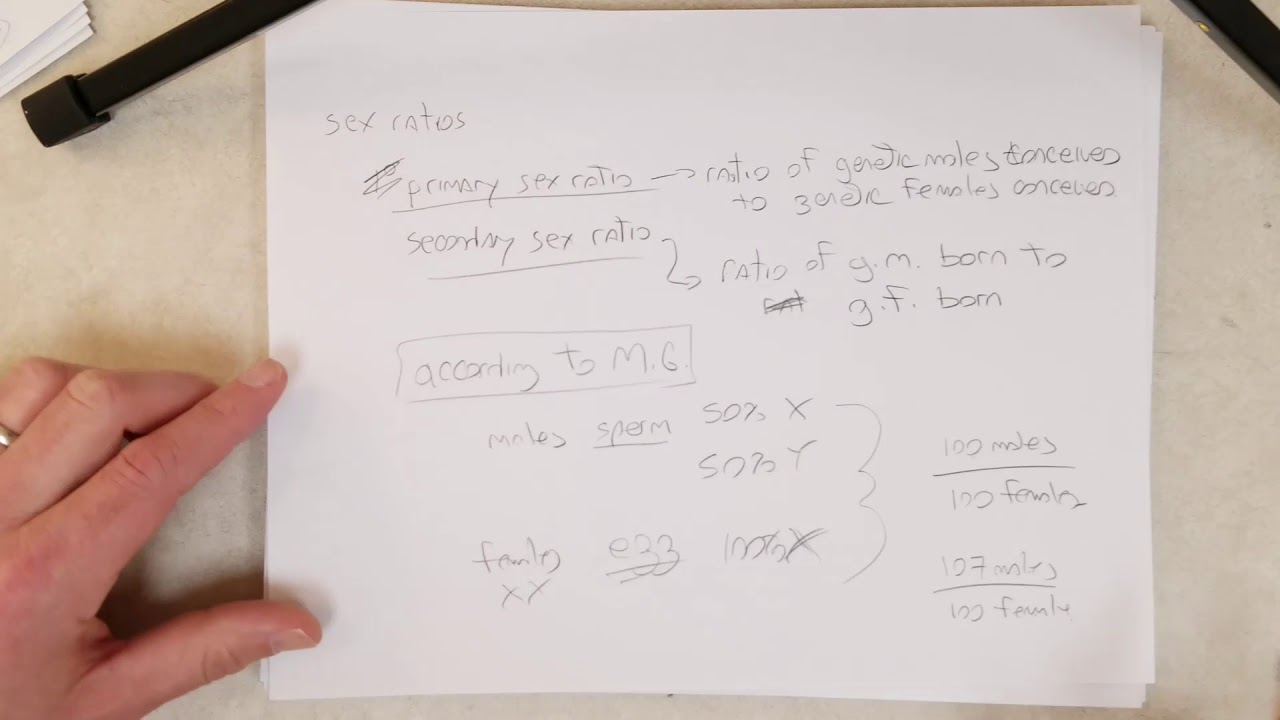 sex ratios
primary sex ratio → ratio of genetic males conceived
to genetic females conceived
secondary sex ratio
ratio of g.m. born to
g.f. born
according to M.G.
males sperm 50% X
50% Y
100 males
100 females
females egg 100% X
XX
107 males
100 female